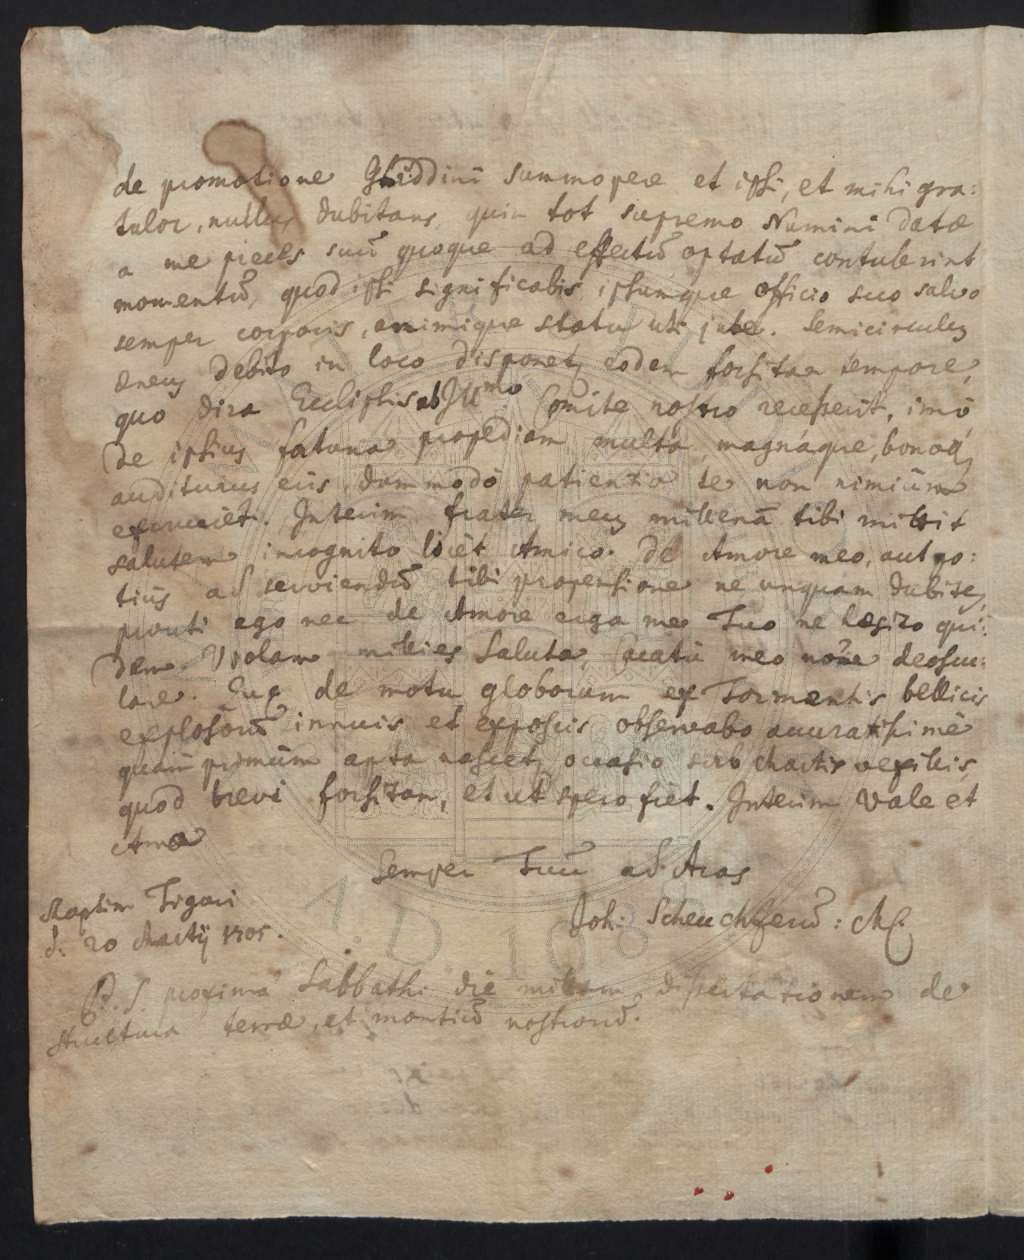 de promotione Ghiddini summopere et ipsi, et mihi gra:
tulor, nullus dubitans, quin tot supremo Numini datæ
a me preces suū quoque ad effectū optatū contulerint
momentū, quod ipsi significabis, ipsumque officio suo salvo
semper corporis, animique statu uti jube. Semicirculus
æneus debito in loco disponet, eodem forsitan tempore,
quo dira Ecclipsis ab Ill:mo Comite nostro recesserit, imò
de ipsius fortuna propediem multa, magnáque, bonaq,
auditurus eris, dummodò patientia te non nimiùm
excruciet. Interim frater meus millenā tibi mittit
salutem incognito licèt Amico. De Amore meo, aut po:
tiùs ad serviendū tibi propensione ne unquam dubites,
prouti ego nec de Amore erga me Tuo ne hæsito qui:
dem. Violam millies saluta, meo noīe deoscu:
lare. Quæ de motu globorum ex Tormentis bellicis
explosorū innuis et exposcis observabo accuratissimè
quàm primùm apta nascet, occasio sub Martis vexillis,
quod brevi forsitan, et ut spero fiet. Interim Vale et
Ama
Semper Tuū ad Aras
Raptim Tiguri
d. 20 Martij 1705.
Joh: Scheuchzerū: Mp.
P.S proxima Sabbathi die mittam dissertationem de
structura terræ, et montiū nostrorū.
A.D. 1088